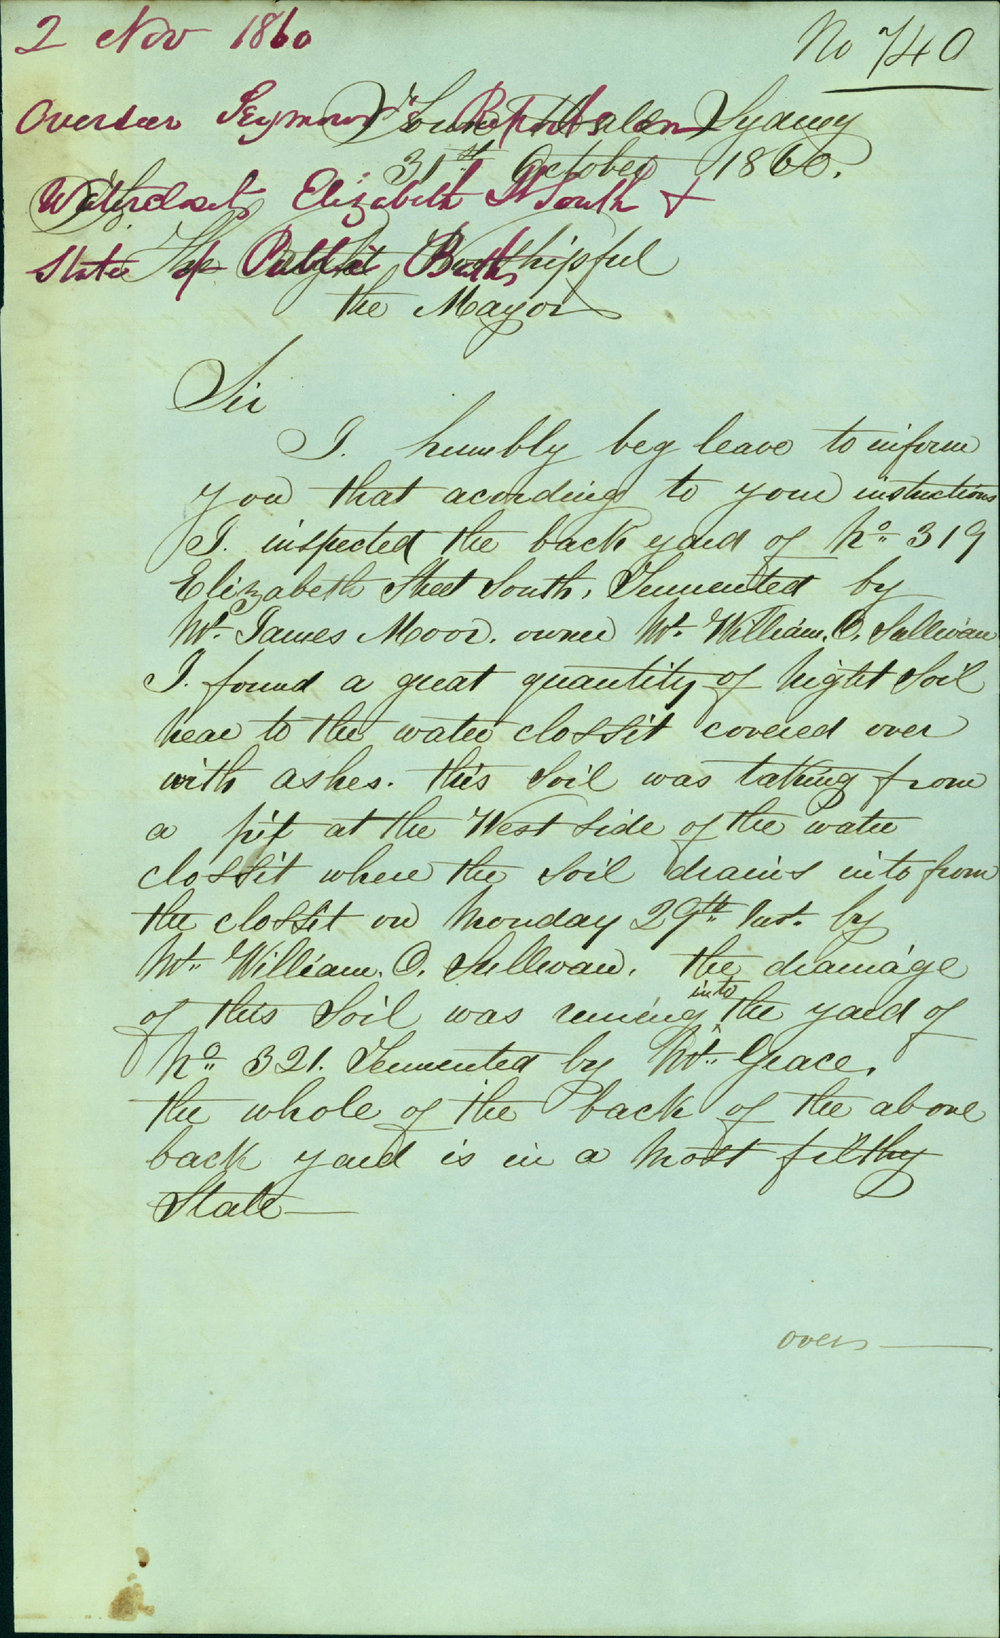 2 Nov 1860
No 740
Overseer Seymour Reports on
Watercloset Elizabeth St South &
State of Public Baths
Town Hall Sydney
31st October 1860.
To
The Right Worshipful
the Mayor
Sir
I. humbly beg leave to inform
you that acording to your instructions
I. inspected the back yard of No. 319
Elizabeth Street South, Tennented by
Mr. James Moor. owner Mr. William. O. Sullivan
I. found a great quantity of Night Soil
near to the water clossit covered over
with ashes. this Soil was taking from
a pit at the West side of the water
clossit where the Soil drains into from
the clossit on Monday 29th Inst. by
Mr. William. O. Sullivan. the drainage
of this Soil was runing into the yard of
No. 321. Tennented by Mr. Grace.
the whole of the back of the above
back yard is in a most filthy
State—
over—